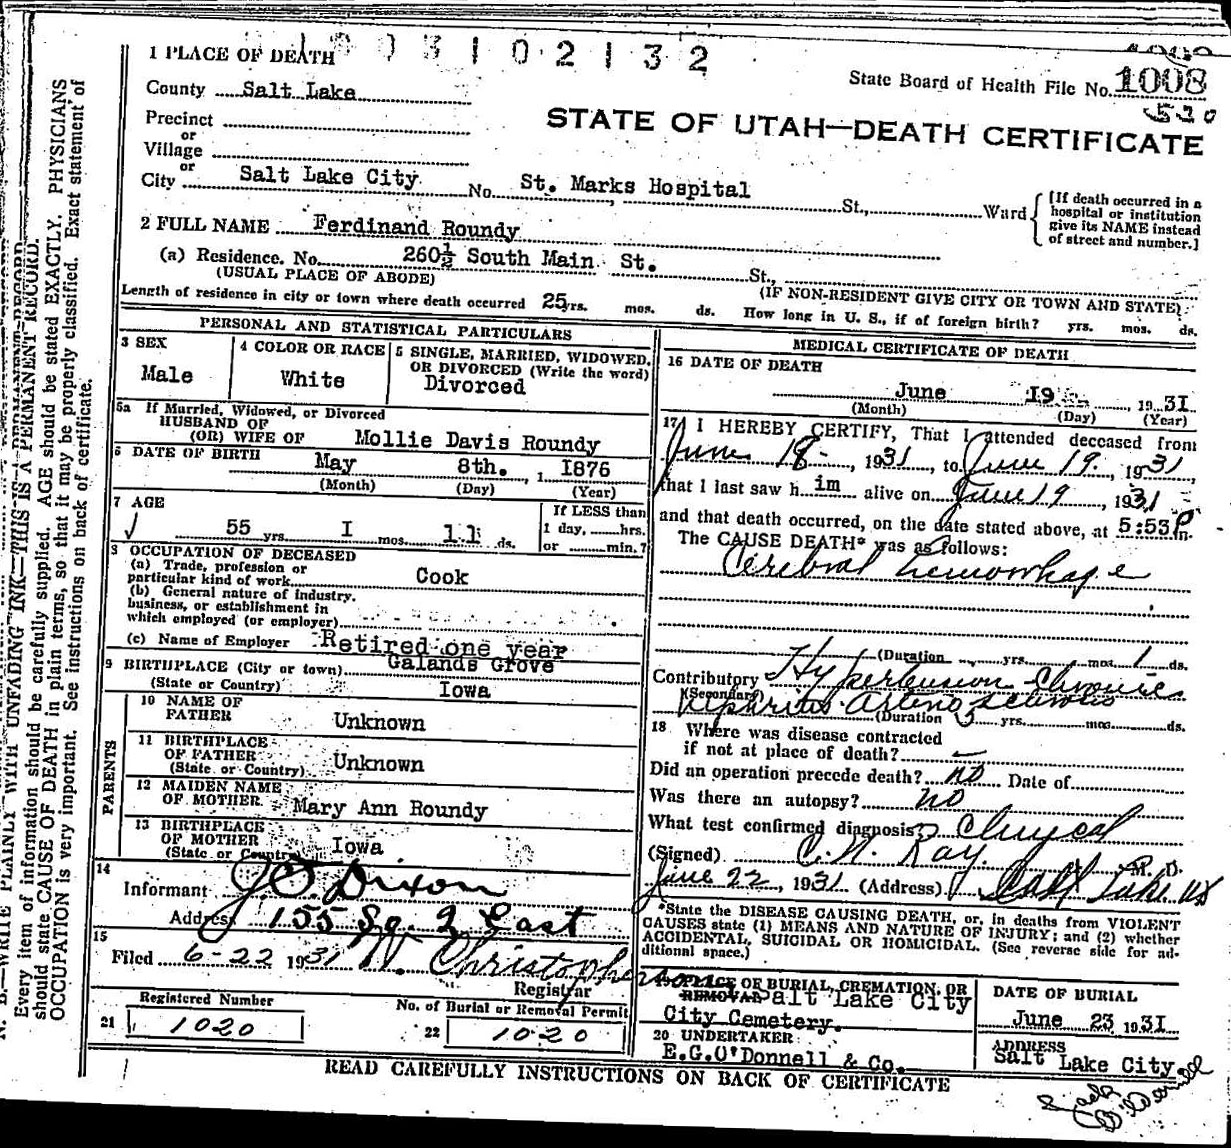 1 PLACE OF DEATH 3 1 0 2 1 3 2
State Board of Health File No. 1008
County Salt Lake
530
Precinct
STATE OF UTAH—DEATH CERTIFICATE
or
Village
or
City Salt Lake City No. St. Marks Hospital St., Ward
[If death occurred in a hospital or institution give its NAME instead of street and number.]
2 FULL NAME Ferdinand Roundy
(a) Residence. No. 260½ South Main St. St.,
(USUAL PLACE OF ABODE) (IF NON-RESIDENT GIVE CITY OR TOWN AND STATE)
Length of residence in city or town where death occurred 25 yrs. mos. ds. How long in U. S., if of foreign birth? yrs. mos. ds.
PERSONAL AND STATISTICAL PARTICULARS
3 SEX
Male
4 COLOR OR RACE
White
5 SINGLE, MARRIED, WIDOWED, OR DIVORCED (Write the word)
Divorced
5a If Married, Widowed, or Divorced
HUSBAND OF
(OR) WIFE OF Mollie Davis Roundy
6 DATE OF BIRTH May 8th. , 1 I876
(Month) (Day) (Year)
7 AGE
55 yrs. I mos. 11 ds.
If LESS than
1 day, hrs.
or min.?
8 OCCUPATION OF DECEASED
(a) Trade, profession or
particular kind of work Cook
(b) General nature of industry,
business, or establishment in
which employed (or employer)
(c) Name of Employer Retired one year
9 BIRTHPLACE (City or town) Galands Grove
(State or Country) Iowa
PARENTS
10 NAME OF
FATHER Unknown
11 BIRTHPLACE
OF FATHER
(State or Country) Unknown
12 MAIDEN NAME
OF MOTHER Mary Ann Roundy
13 BIRTHPLACE
OF MOTHER
(State or Country) Iowa
14
Informant J O Dixon
Address 155 So. 2 East
15
Filed 6-22 1931 W. Christopherson
Registrar
Registered Number
21 1020
No. of Burial or Removal Permit
22 1020
MEDICAL CERTIFICATE OF DEATH
16 DATE OF DEATH
June 19 , 1931
(Month) (Day) (Year)
17 I HEREBY CERTIFY, That I attended deceased from
June 18 , 1931, to June 19. 1931,
that I last saw him alive on June 19 , 1931
and that death occurred, on the date stated above, at 5:53 P m.
The CAUSE DEATH* was as follows:
Cerebral hemorrhage
(Duration yrs. mos. 1 ds.
Contributory Hypertension chronic
(Secondary) Nephritis Arterio Sclerosis
(Duration 5 yrs. mos. ds.
18 Where was disease contracted
if not at place of death? –
Did an operation precede death? no Date of
Was there an autopsy? no
What test confirmed diagnosis? Clinycal
(Signed) C. N. Ray. M. D.
June 22, 1931 (Address) Salt Lake
*State the DISEASE CAUSING DEATH, or, in deaths from VIOLENT
CAUSES state (1) MEANS AND NATURE OF INJURY; and (2) whether
ACCIDENTAL, SUICIDAL OR HOMICIDAL. (See reverse side for ad-
ditional space.)
19 PLACE OF BURIAL, CREMATION, OR
REMOVAL Salt Lake City
City Cemetery.
DATE OF BURIAL
June 23 1931
20 UNDERTAKER
E.G.O'Donnell & Co.
ADDRESS
Salt Lake City
READ CAREFULLY INSTRUCTIONS ON BACK OF CERTIFICATE
N. B.—WRITE PLAINLY WITH UNFADING INK—THIS IS A PERMANENT RECORD.
Every item of information should be carefully supplied. AGE should be stated EXACTLY. PHYSICIANS
should state CAUSE OF DEATH in plain terms, so that it may be properly classified. Exact statement of
OCCUPATION is very important. See instructions on back of certificate.